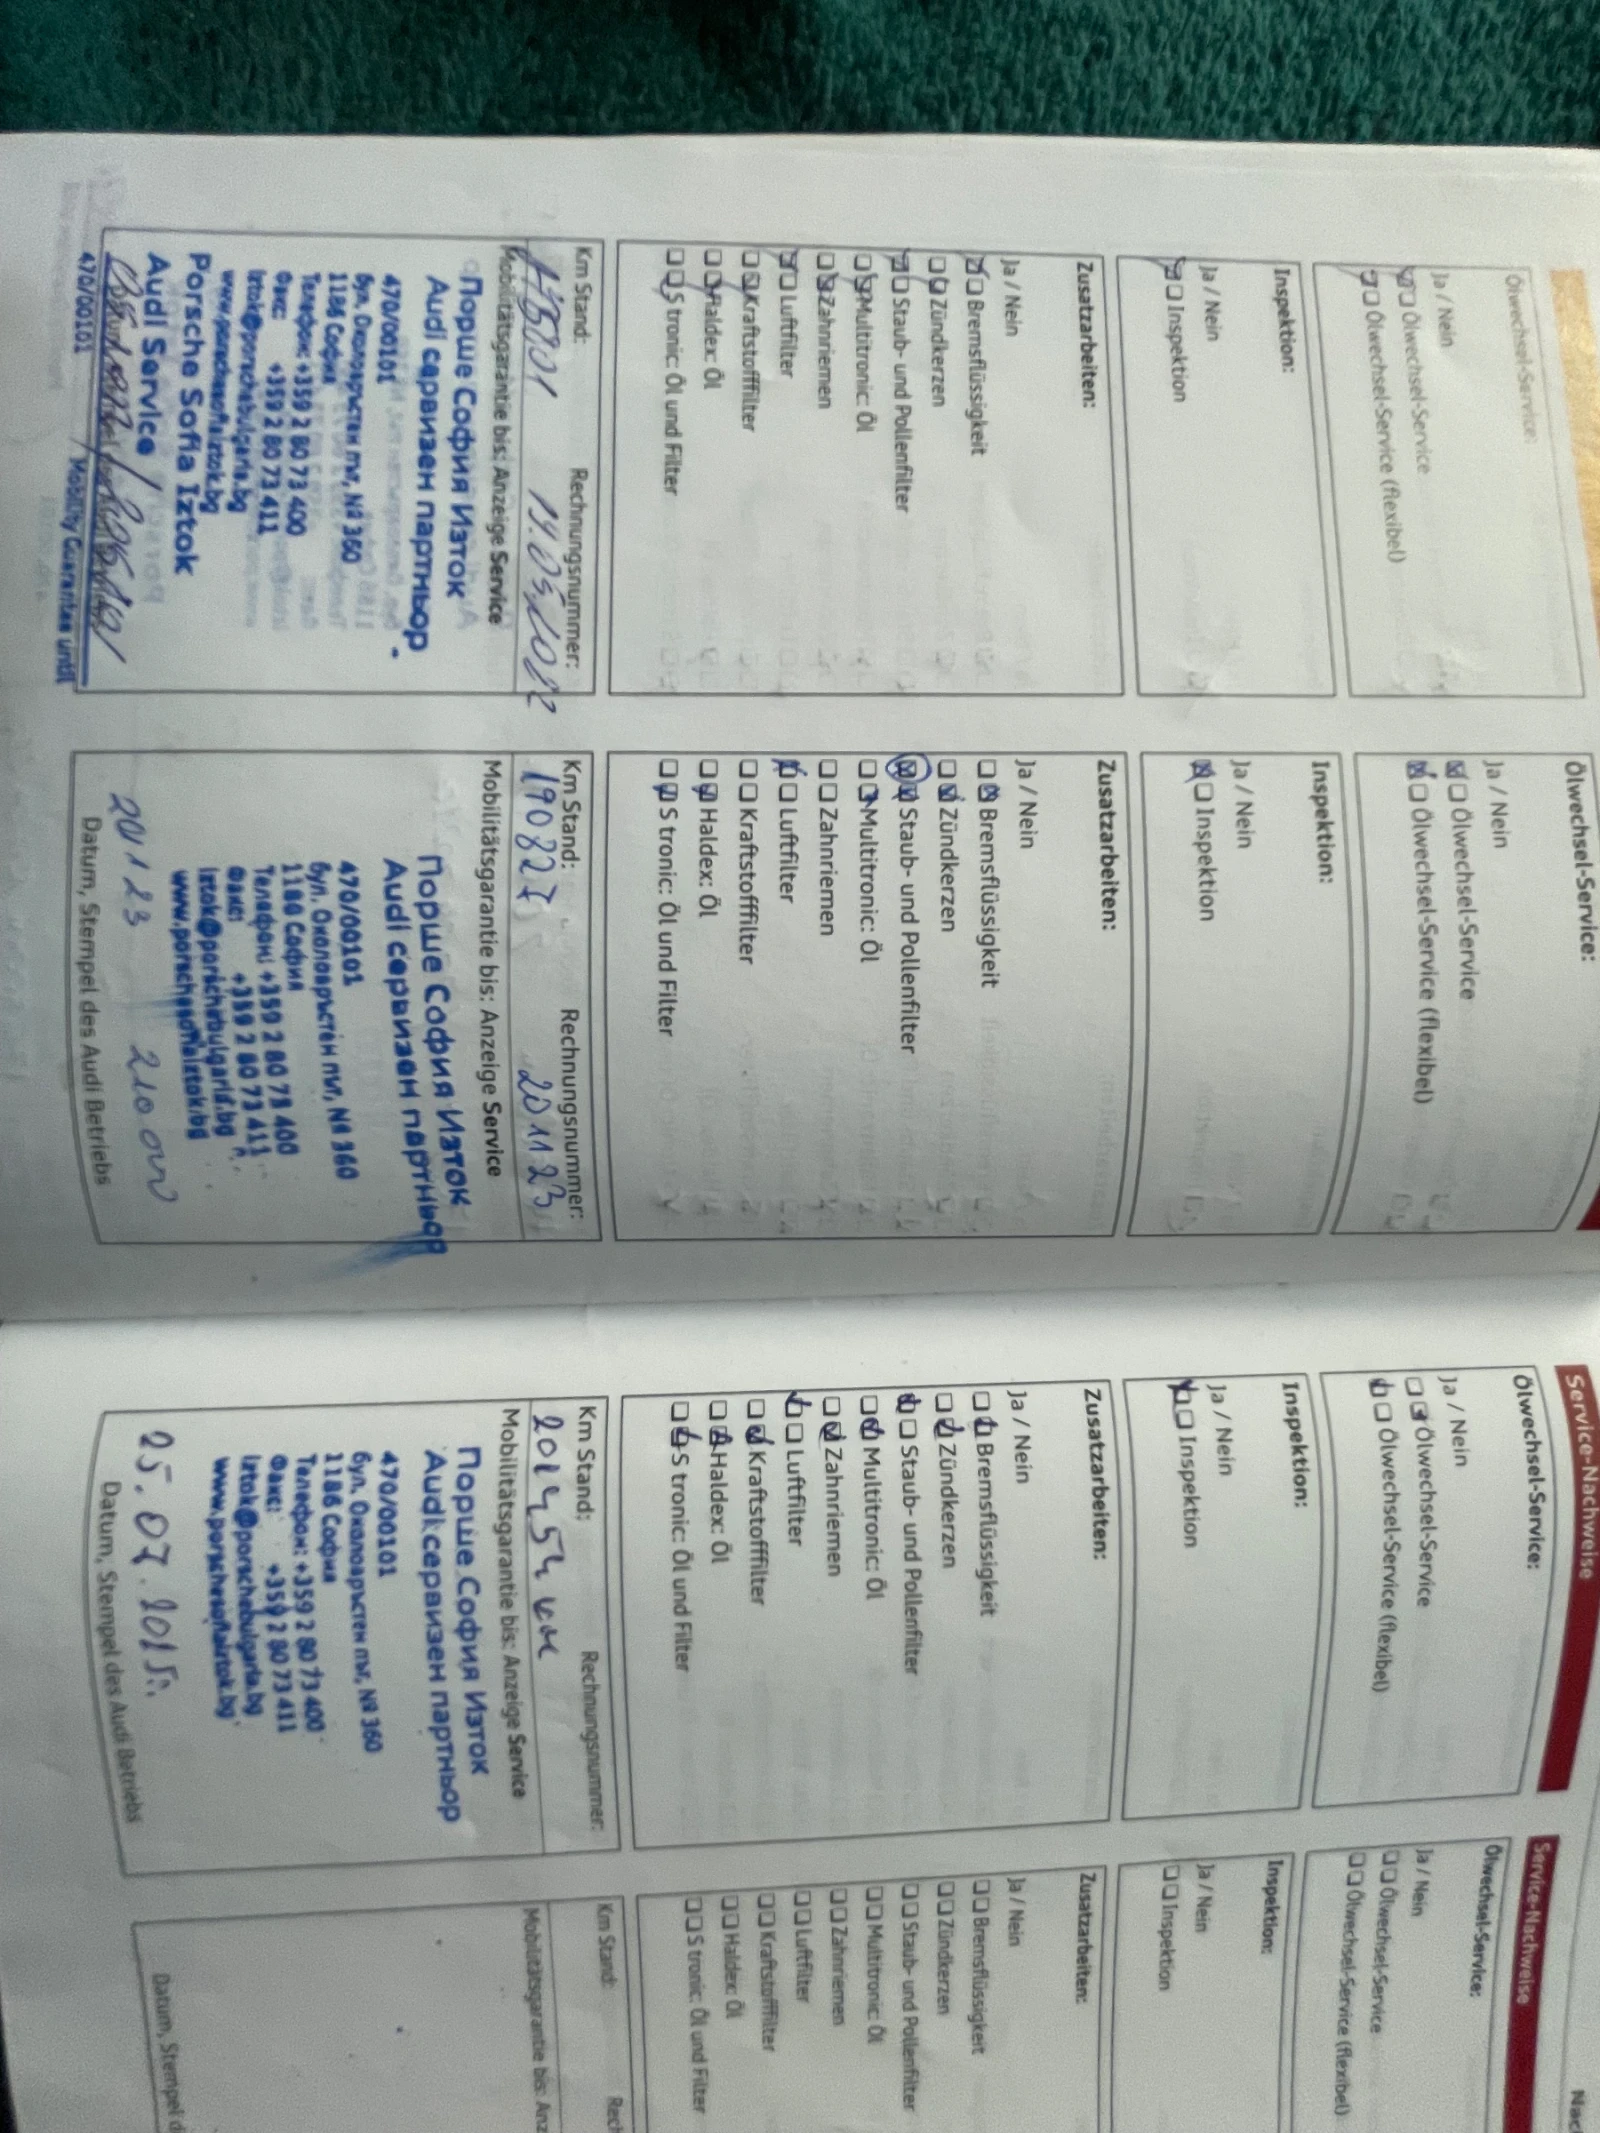 Ölwechsel-Service:
Ja / Nein
Ölwechsel-Service
Ölwechsel-Service (flexibel)
Inspektion:
Ja / Nein
Inspektion
Zusatzarbeiten:
Ja / Nein
Bremsflüssigkeit
Zündkerzen
Staub- und Pollenfilter
Multitronic: Öl
Zahnriemen
Luftfilter
Kraftstofffilter
Haldex: Öl
S tronic: Öl und Filter
Km Stand:
Rechnungsnummer:
Mobilitätsgarantie bis: Anzeige Service
Порше София Изток
Audi сервизен партньор
470/00101
бул. Околовръстен път, № 360
1186 София
Телефон: +359 2 80 73 400
Факс: +359 2 80 73 411
iztok@porschebulgaria.bg
www.porschesofiaiztok.bg
Porsche Sofia Iztok
Audi Service
470/00101 / Mobility Guarantee until
Ölwechsel-Service:
Ja / Nein
Ölwechsel-Service
Ölwechsel-Service (flexibel)
Inspektion:
Ja / Nein
Inspektion
Zusatzarbeiten:
Ja / Nein
Bremsflüssigkeit
Zündkerzen
Staub- und Pollenfilter
Multitronic: Öl
Zahnriemen
Luftfilter
Kraftstofffilter
Haldex: Öl
S tronic: Öl und Filter
Km Stand:
Rechnungsnummer:
190827
20 11 23
Mobilitätsgarantie bis: Anzeige Service
Порше София Изток
Audi сервизен партньор
470/00101
бул. Околовръстен път, № 360
1186 София
Телефон: +359 2 80 73 400
Факс: +359 2 80 73 411
iztok@porschebulgaria.bg
www.porschesofiaiztok.bg
210.000
Datum, Stempel des Audi Betriebs
Service-Nachweise
Ölwechsel-Service:
Ja / Nein
Ölwechsel-Service
Ölwechsel-Service (flexibel)
Inspektion:
Ja / Nein
Inspektion
Zusatzarbeiten:
Ja / Nein
Bremsflüssigkeit
Zündkerzen
Staub- und Pollenfilter
Multitronic: Öl
Zahnriemen
Luftfilter
Kraftstofffilter
Haldex: Öl
S tronic: Öl und Filter
Km Stand:
Rechnungsnummer:
Mobilitätsgarantie bis: Anzeige Service
Порше София Изток
Audi сервизен партньор
470/00101
бул. Околовръстен път, № 360
1186 София
Телефон: +359 2 80 73 400
Факс: +359 2 80 73 411
iztok@porschebulgaria.bg
www.porschesofiaiztok.bg
Datum, Stempel des Audi Betriebs
Service-Nachweise
Ölwechsel-Service:
Ja / Nein
Ölwechsel-Service
Ölwechsel-Service (flexibel)
Inspektion:
Ja / Nein
Inspektion
Zusatzarbeiten:
Ja / Nein
Bremsflüssigkeit
Zündkerzen
Staub- und Pollenfilter
Multitronic: Öl
Zahnriemen
Luftfilter
Kraftstofffilter
Haldex: Öl
S tronic: Öl und Filter
Km Stand:
Rech
Mobilitätsgarantie bis: Anz
Datum, Stempel d